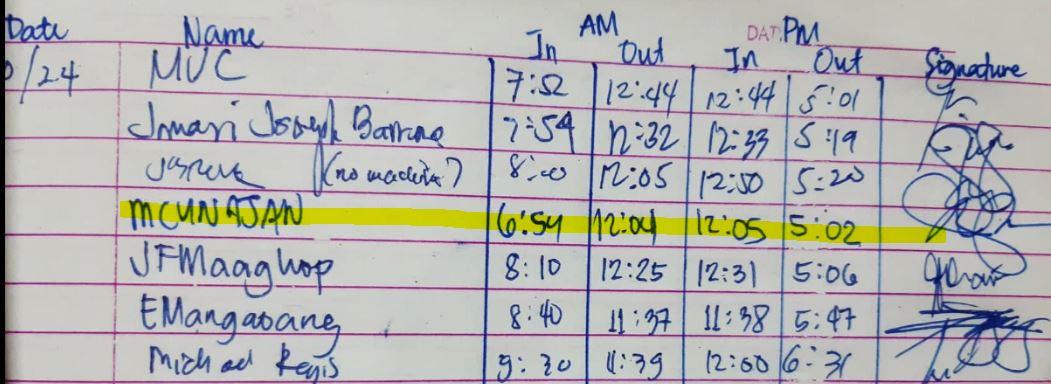 Date Name AM DAT: PM
In Out In Out Signature
/24 MVC 7:52 12:44 12:44 5:01
Joseph 7:54 12:32 12:33 5:19
8:00 12:05 12:50 5:20
MCUNAJAN 6:54 12:04 12:05 5:02
JFMaaghop 8:10 12:25 12:31 5:06
EMangaoang 8:40 11:37 11:38 5:47
Michael Regis 9:30 11:39 12:00 6:31